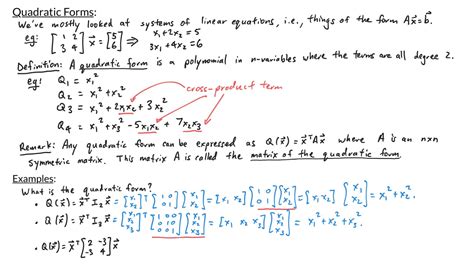 Quadratic Forms:
We've mostly looked at systems of linear equations, i.e., things of the form Ax⃗=b⃗.
eg: [1 2; 3 4] x⃗ = [5; 6] ⟹ x₁+2x₂=5
3x₁+4x₂=6
Definition: A quadratic form is a polynomial in n-variables where the terms are all degree 2.
eg: Q₁ = x₁²
Q₂ = x₁²+x₂²
cross-product term
Q₃ = x₁²+2x₁x₂+3x₂²
Q₄ = x₁²+x₂²-5x₁x₂+7x₂x₃
Remark: Any quadratic form can be expressed as Q(x⃗)=x⃗ᵀAx⃗ where A is an n×n
symmetric matrix. This matrix A is called the matrix of the quadratic form.
Examples:
What is the quadratic form?
• Q(x⃗)=x⃗ᵀI₂x⃗ =[x₁; x₂]ᵀ[1 0; 0 1][x₁; x₂]=[x₁ x₂][1 0; 0 1][x₁; x₂]=[x₁ x₂][x₁; x₂]=x₁²+x₂².
• Q(x⃗)=x⃗ᵀI₃x⃗ =[x₁; x₂; x₃]ᵀ[1 0 0; 0 1 0; 0 0 1][x₁; x₂; x₃]=[x₁ x₂ x₃][x₁; x₂; x₃]=x₁²+x₂²+x₃².
• Q(x⃗)=x⃗ᵀ[2 -3; -3 4]x⃗